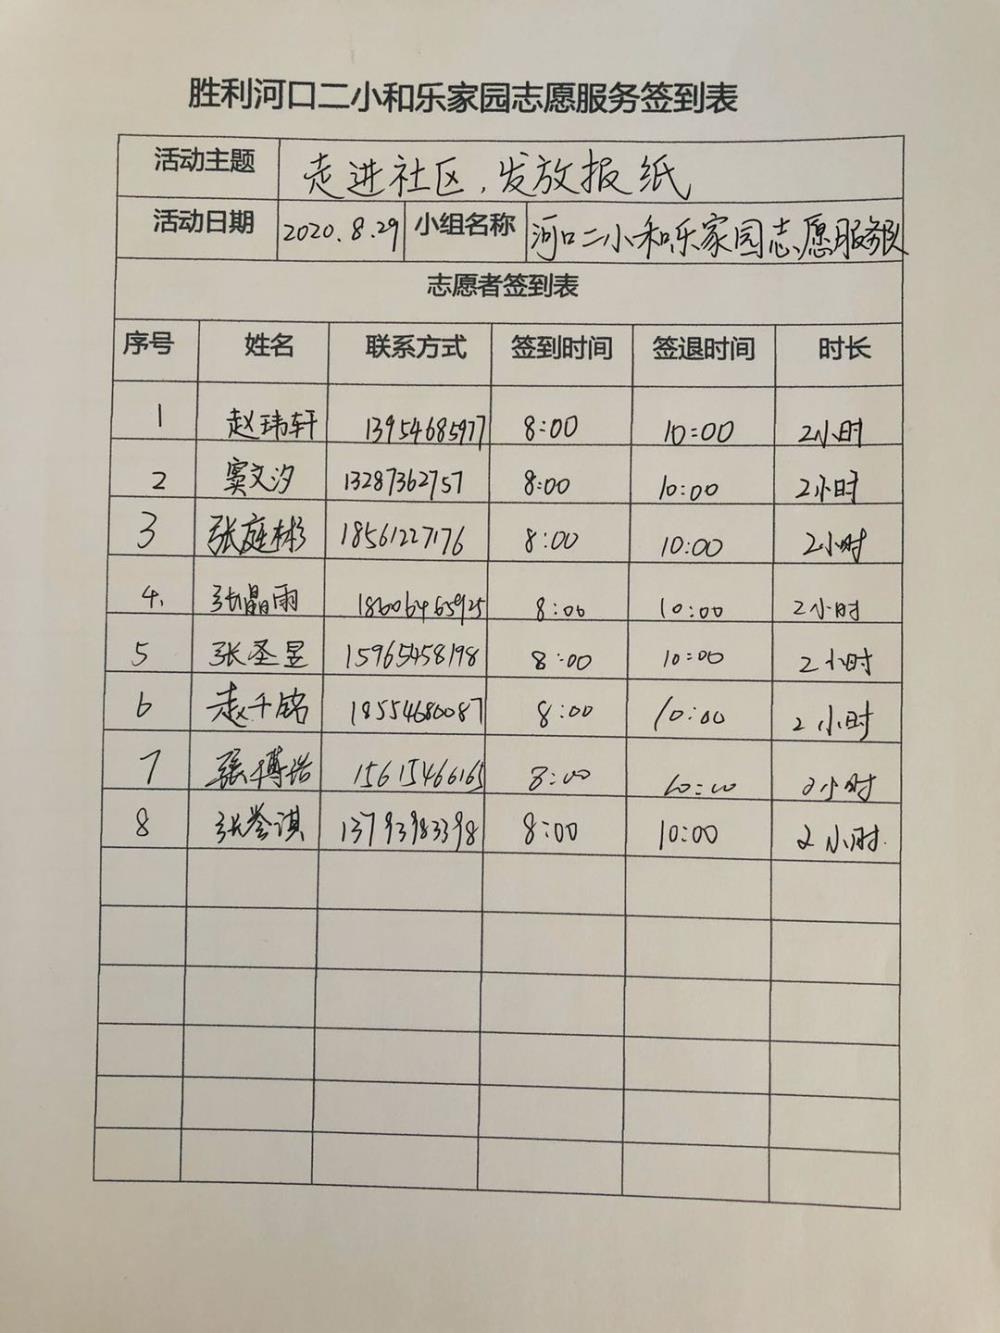 胜利河口二小和乐家园志愿服务签到表
活动主题 走进社区,发放报纸
活动日期 2020.8.29 小组名称 河口二小和乐家园志愿服务队
志愿者签到表
序号 姓名 联系方式 签到时间 签退时间 时长
1 赵玮轩 13954685977 8:00 10:00 2小时
2 窦文汐 13287362757 8:00 10:00 2小时
3 张庭彬 18561227176 8:00 10:00 2小时
4. 张晶雨 18606465925 8:00 10:00 2小时
5 张圣昱 15965458198 8:00 10:00 2小时
6 赵千铭 18554680087 8:00 10:00 2小时
7 張博浩 15615466165 8:00 10:00 2小时
8 张誉淇 13793983398 8:00 10:00 2小时.